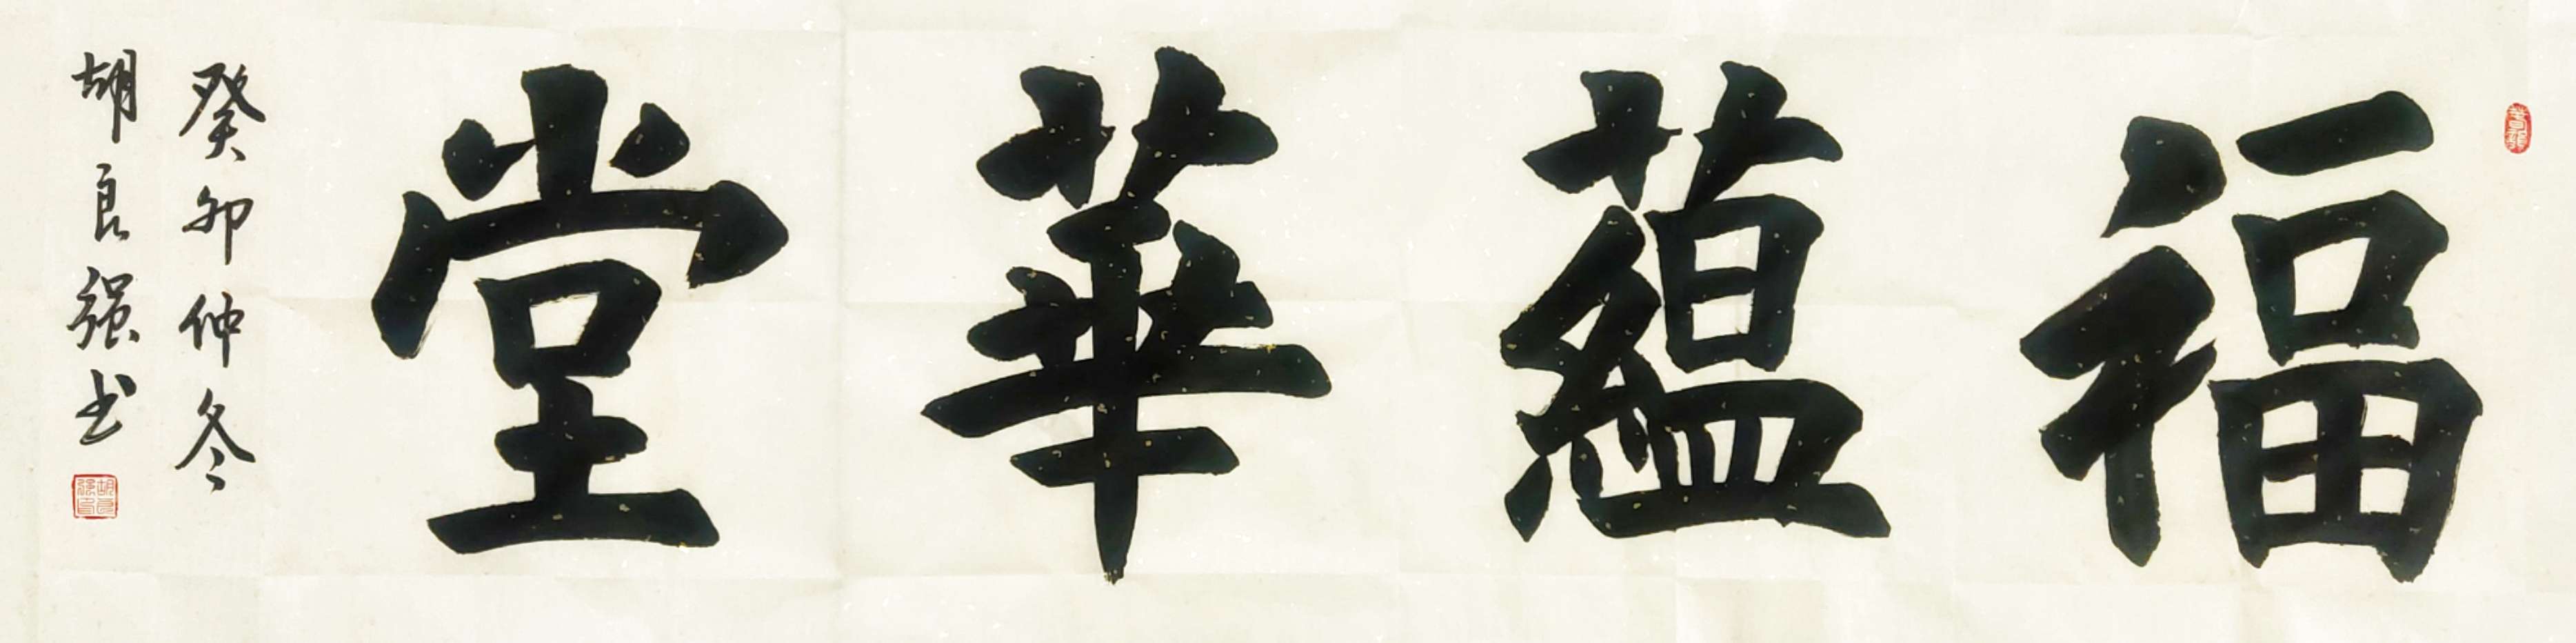 福蘊華堂
癸卯仲冬
胡良强书